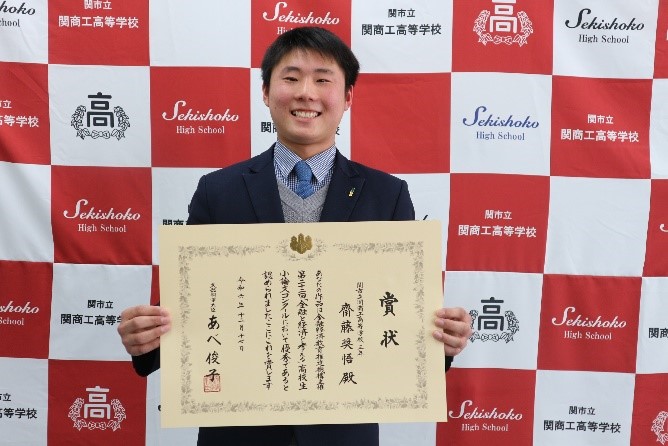 Sekishoko
High School
関市立
関商工高等学校
高
Sekishoko
High School
関市立
関商工高等学校
高
Sekishoko
High School
関市立
関商工高等学校
高
Sekishoko
High School
関市立
関商工高等学校
Sekishoko
High School
関市立
関商工高等学校
高
Sekishoko
High School
関市立
関商工高等学校
高
Sekishoko
High School
関市立
関商工高等学校
賞状
関市立関商工高等学校三年
齋藤奨悟 殿
あなたの作品は金融経済教育推進機構主催
金融と経済を考える高校生
小論文コンクールにおいて優秀であると
認められましたここにこれを賞します
令和六年
文部科学大臣 あべ俊子